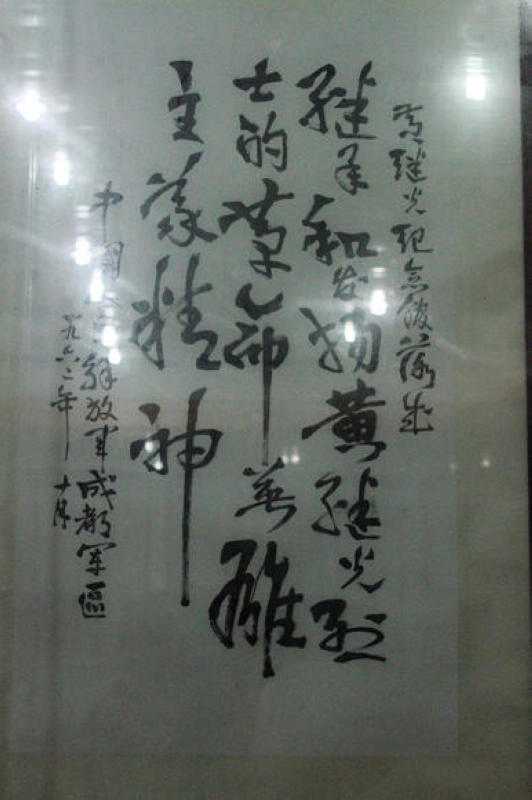 黄继光纪念馆落成
继承和发扬黄继光烈
士的革命英雄
主義精神
中國人民解放軍成都軍區
一九六二年十月